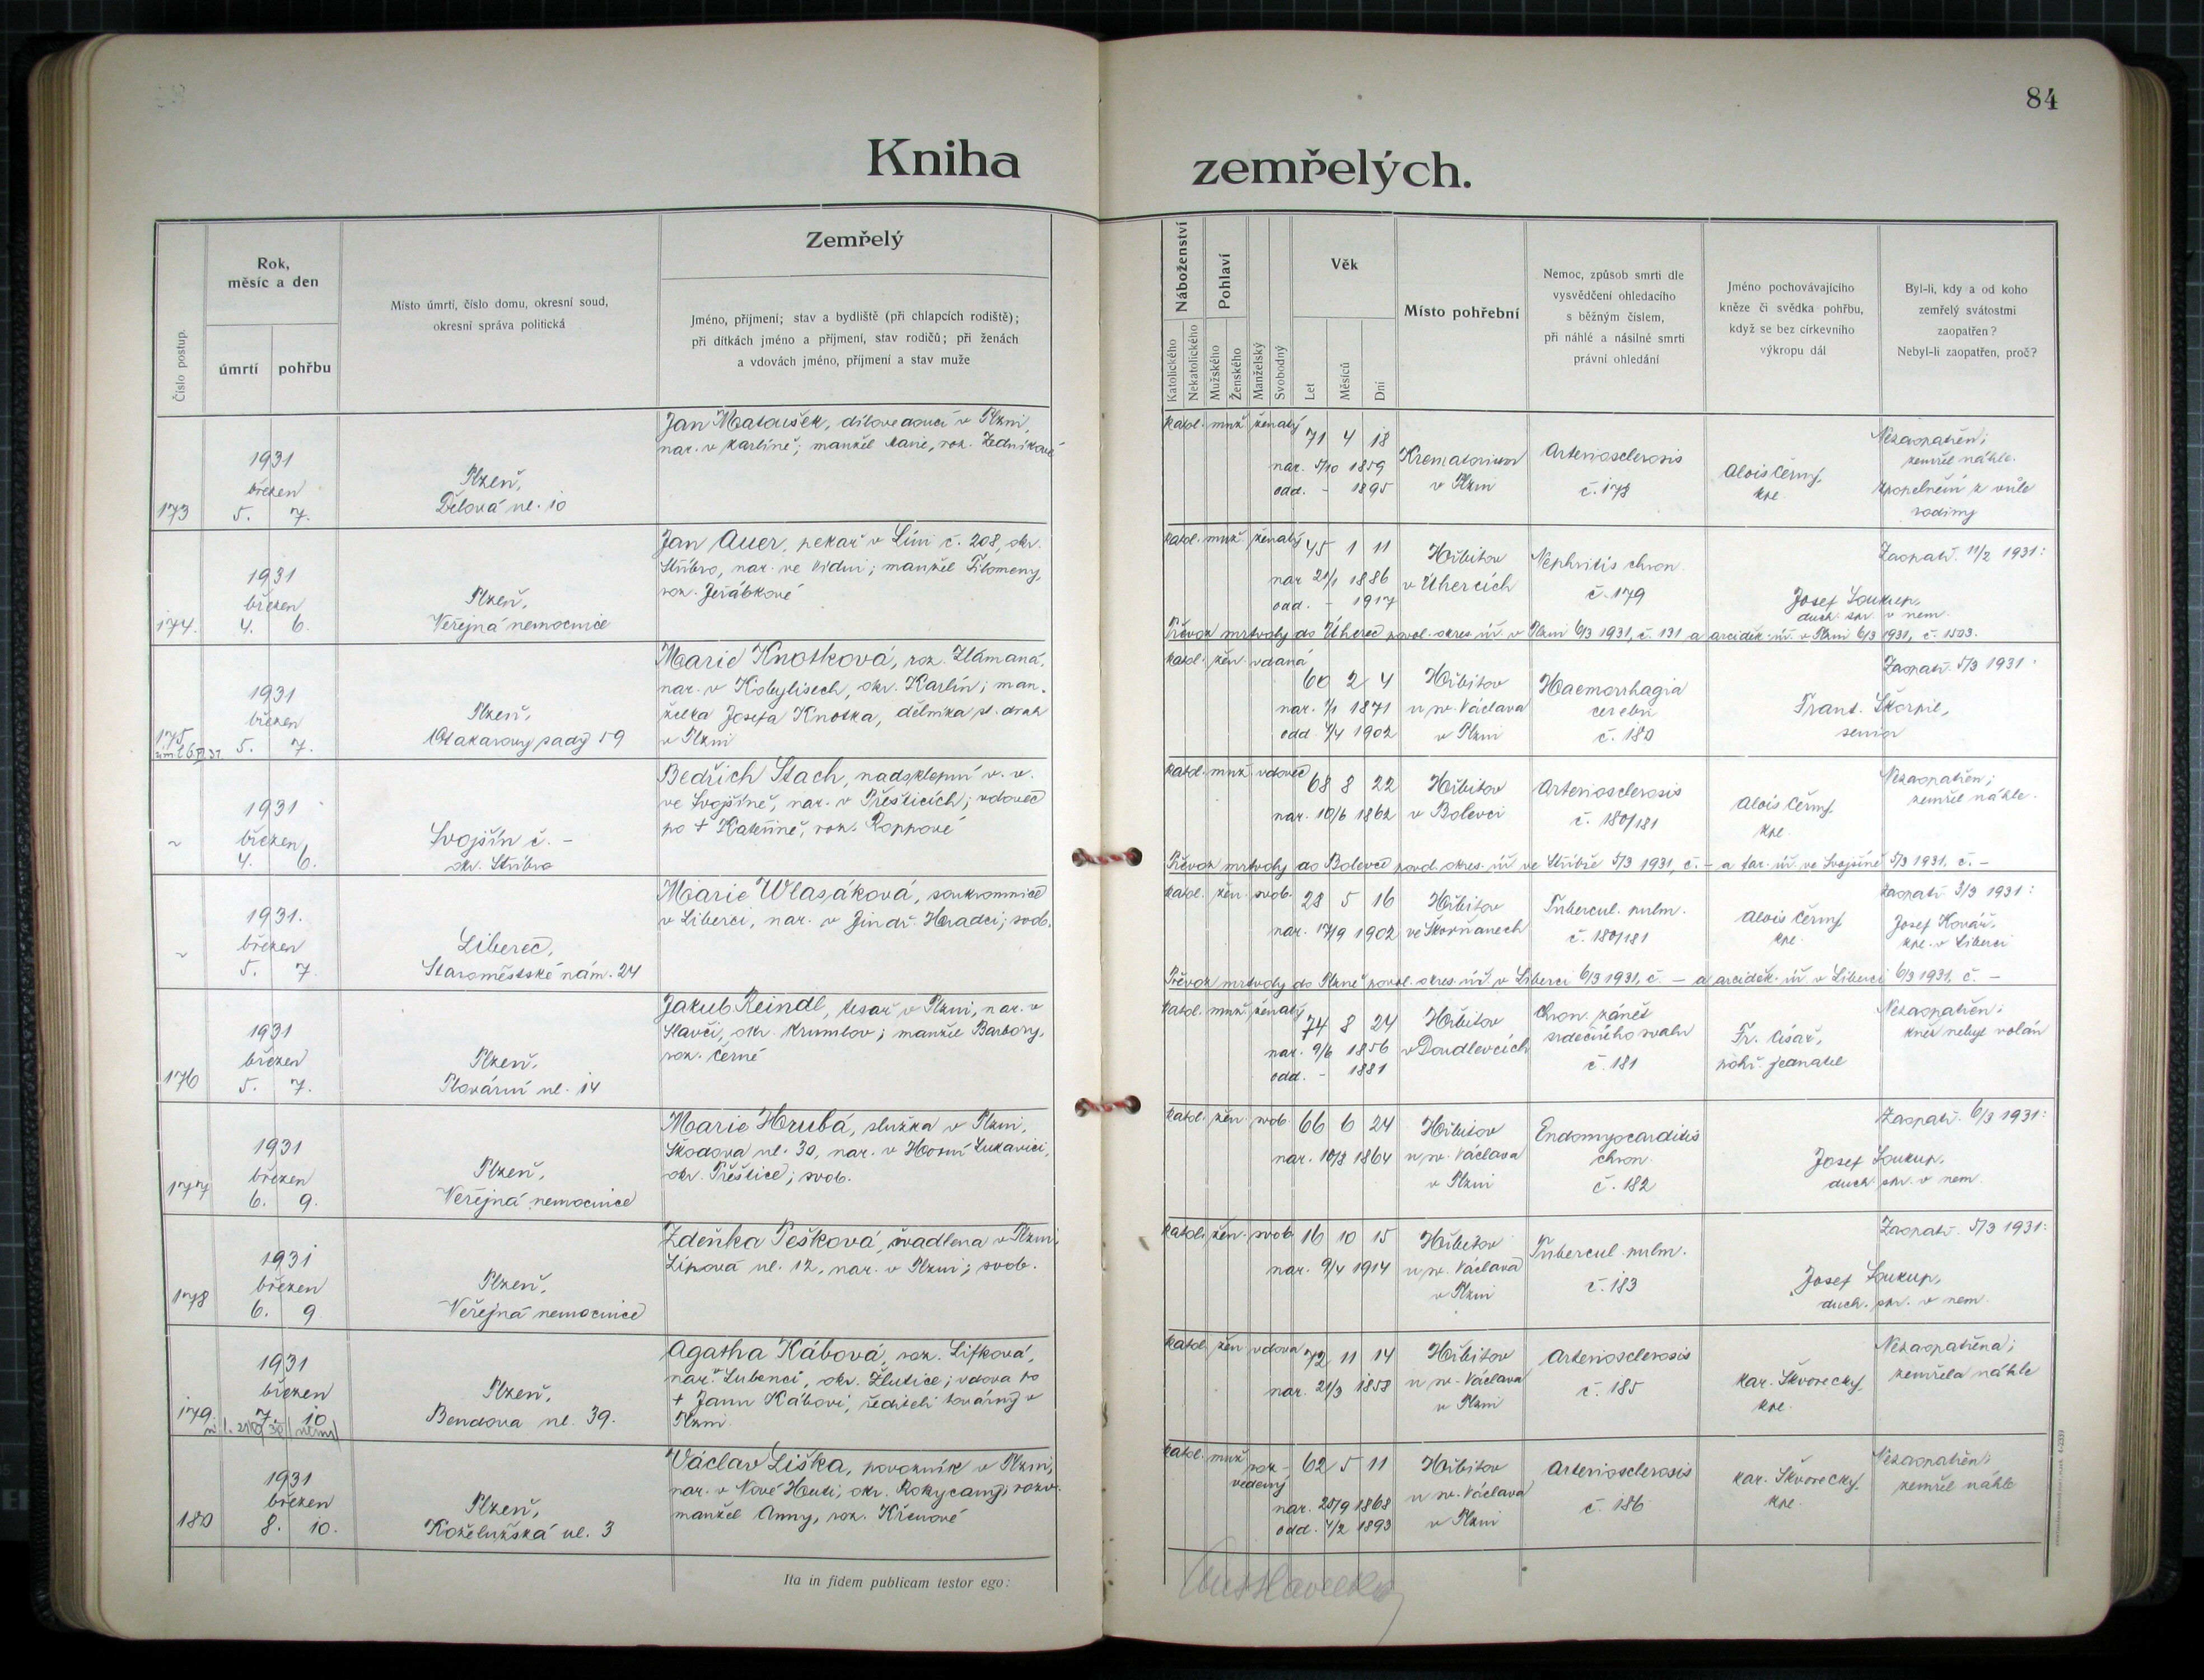 84
Kniha zemřelých.
Číslo postup.
Rok,
měsíc a den
úmrtí
pohřbu
Místo úmrtí, číslo domu, okresní soud,
okresní správa politická
Zemřelý
Jméno, příjmení; stav a bydliště (při chlapcích rodiště);
při dítkách jméno a příjmení, stav rodičů; při ženách
a vdovách jméno, příjmení a stav muže
Náboženství
Katolického
Nekatolického
Pohlaví
Mužského
Ženského
Manželský
Svobodný
Věk
Let
Měsíců
Dní
Místo pohřební
Nemoc, způsob smrti dle
vysvědčení ohledacího
s běžným číslem,
při náhlé a násilné smrti
právní ohledání
Jméno pochovávajícího
kněze či svědka pohřbu,
když se bez církevního
výkropu dál
Byl-li, kdy a od koho
zemřelý svátostmi
zaopatřen?
Nebyl-li zaopatřen, proč?
173
1931
březen
5. 7.
Plzeň,
Dělová ul. 10
Jan Matoušek, dílovedoucí v Plzni,
nar. v Karlíně; manžel Marie, roz. Zedníkové
katol. muž. ženatý
71 4 18
nar. 5/10 1859
odd. - 1895
Krematorium
v Plzni
Arteriosclerosis
č. 178
Alois Černý,
kpl.
Nezaopatřen;
zemřel náhle.
Zpopelnění z vůle
rodiny
174.
1931
březen
4. 6.
Plzeň,
Veřejná nemocnice
Jan Auer, pekař v Líni č. 208, okr.
Stříbro, nar. ve Vídni; manžel Filomeny,
roz. Jeřábkové
katol. muž. ženatý
45 1 11
nar 21/1 1886
odd. - 1917
Hřbitov
v Úhercích
Nephritis chron.
č. 179
Josef Soukup,
duch. spr. v nem.
Zaopatř. 11/2 1931:
Převoz mrtvoly do Úherec povol. okres. úř. v Plzni 6/3 1931, č. 131 a arciděk. úř. v Plzni 6/3 1931, č. 1503.
175
1931
březen
5. 7.
Plzeň,
Otakarovy sady 59
Marie Knotková, roz. Zlámaná,
nar. v Kobylisech, okr. Karlín; man-
želka Josefa Knotka, dělníka st. drah
v Plzni
katol. žen. vdaná
60 2 4
nar. 1/1 1871
odd. 7/4 1902
Hřbitov
u sv. Václava
v Plzni
Haemorrhagia
cerebri
č. 180
Frant. Škorpil,
senior
Zaopatř. 5/3 1931:
~
1931
březen
4. 6.
Svojšín č. -
okr. Stříbro
Bedřich Stach, nadsklepní v. v.
ve Svojšíně, nar. v Přešticích; vdovec
po + Kateřině, roz. Roppové
katol. muž. vdovec
68 8 22
nar. 10/6 1862
Hřbitov
v Bolevci
Arteriosclerosis
č. 180/181
Alois Černý,
kpl.
Nezaopatřen;
zemřel náhle.
Převoz mrtvoly do Bolevce povol. okres. úř. ve Stříbře 5/3 1931, č. - a far. úř. ve Svojšíně 5/3 1931, č. -
~
1931.
březen
5. 7.
Liberec,
Staroměstské nám. 24
Marie Wlasáková, soukromnice
v Liberci, nar. v Jindř. Hradci; svob.
katol. žen. svob.
28 5 16
nar. 17/9 1902
Hřbitov
ve Skvrňanech
Tubercul. pulm.
č. 180/181
Alois Černý,
kpl.
Zaopatř. 3/3 1931:
Josef Kovář,
kpl. v Liberci
Převoz mrtvoly do Plzně povol. okres. úř. v Liberci 6/3 1931, č. - a arciděk. úř. v Liberci 6/3 1931, č. -
176
1931
březen
5. 7.
Plzeň,
Plovární ul. 14
Jakub Reindl, tesař v Plzni, nar. v
Slavči, okr. Krumlov; manžel Barbory,
roz. Černé
katol. muž. ženatý
74 8 24
nar. 9/6 1856
odd. - 1881
Hřbitov
v Doudlevcích
Chron. zánět
srdečního svalu
č. 181
Fr. Císař,
pohř. jednatel
Nezaopatřen;
kněz nebyl volán
177
1931
březen
6. 9.
Plzeň,
Veřejná nemocnice
Marie Hrubá, služka v Plzni,
Škodova ul. 30, nar. v Horní Lukavici,
okr. Přeštice; svob.
katol. žen. svob.
66 6 24
nar. 10/8 1864
Hřbitov
u sv. Václava
v Plzni
Endomyocarditis
chron.
č. 182
Josef Soukup,
duch. spr. v nem.
Zaopatř. 6/3 1931:
178
1931
březen
6. 9
Plzeň,
Veřejná nemocnice
Zdeňka Pešková, švadlena v Plzni,
Lipová ul. 12, nar. v Plzni; svob.
katol. žen. svob
16 10 15
nar. 9/4 1914
Hřbitov
u sv. Václava
v Plzni
Tubercul. pulm.
č. 183
Josef Soukup,
duch. spr. v nem.
Zaopatř. 5/3 1931:
179
1931
březen
7. 10
Plzeň,
Bendova ul. 39.
Agatha Kábová, roz. Lifková,
nar. Lubenci, okr. Žlutice; vdova po
+ Janu Kábovi, řediteli továrny v
Plzni
katol. žen vdova
72 11 14
nar. 21/3 1858
Hřbitov
u sv. Václava
v Plzni
Arteriosclerosis
č. 185
Kar. Škvorecký,
kpl.
Nezaopatřena;
zemřela náhle
180
1931
březen
8. 10.
Plzeň,
Koželužská ul. 3
Václav Liška, povozník v Plzni,
nar. v Nové Huti, okr. Rokycany; rozv.
manžel Anny, roz. Křenové
katol. muž roz-
vedený
62 5 11
nar. 25/9 1868
odd. 7/2 1893
Hřbitov
u sv. Václava
v Plzni
Arteriosclerosis
č. 186
Kar. Škvorecký,
kpl.
Nezaopatřen;
zemřel náhle
Ita in fidem publicam testor ego: